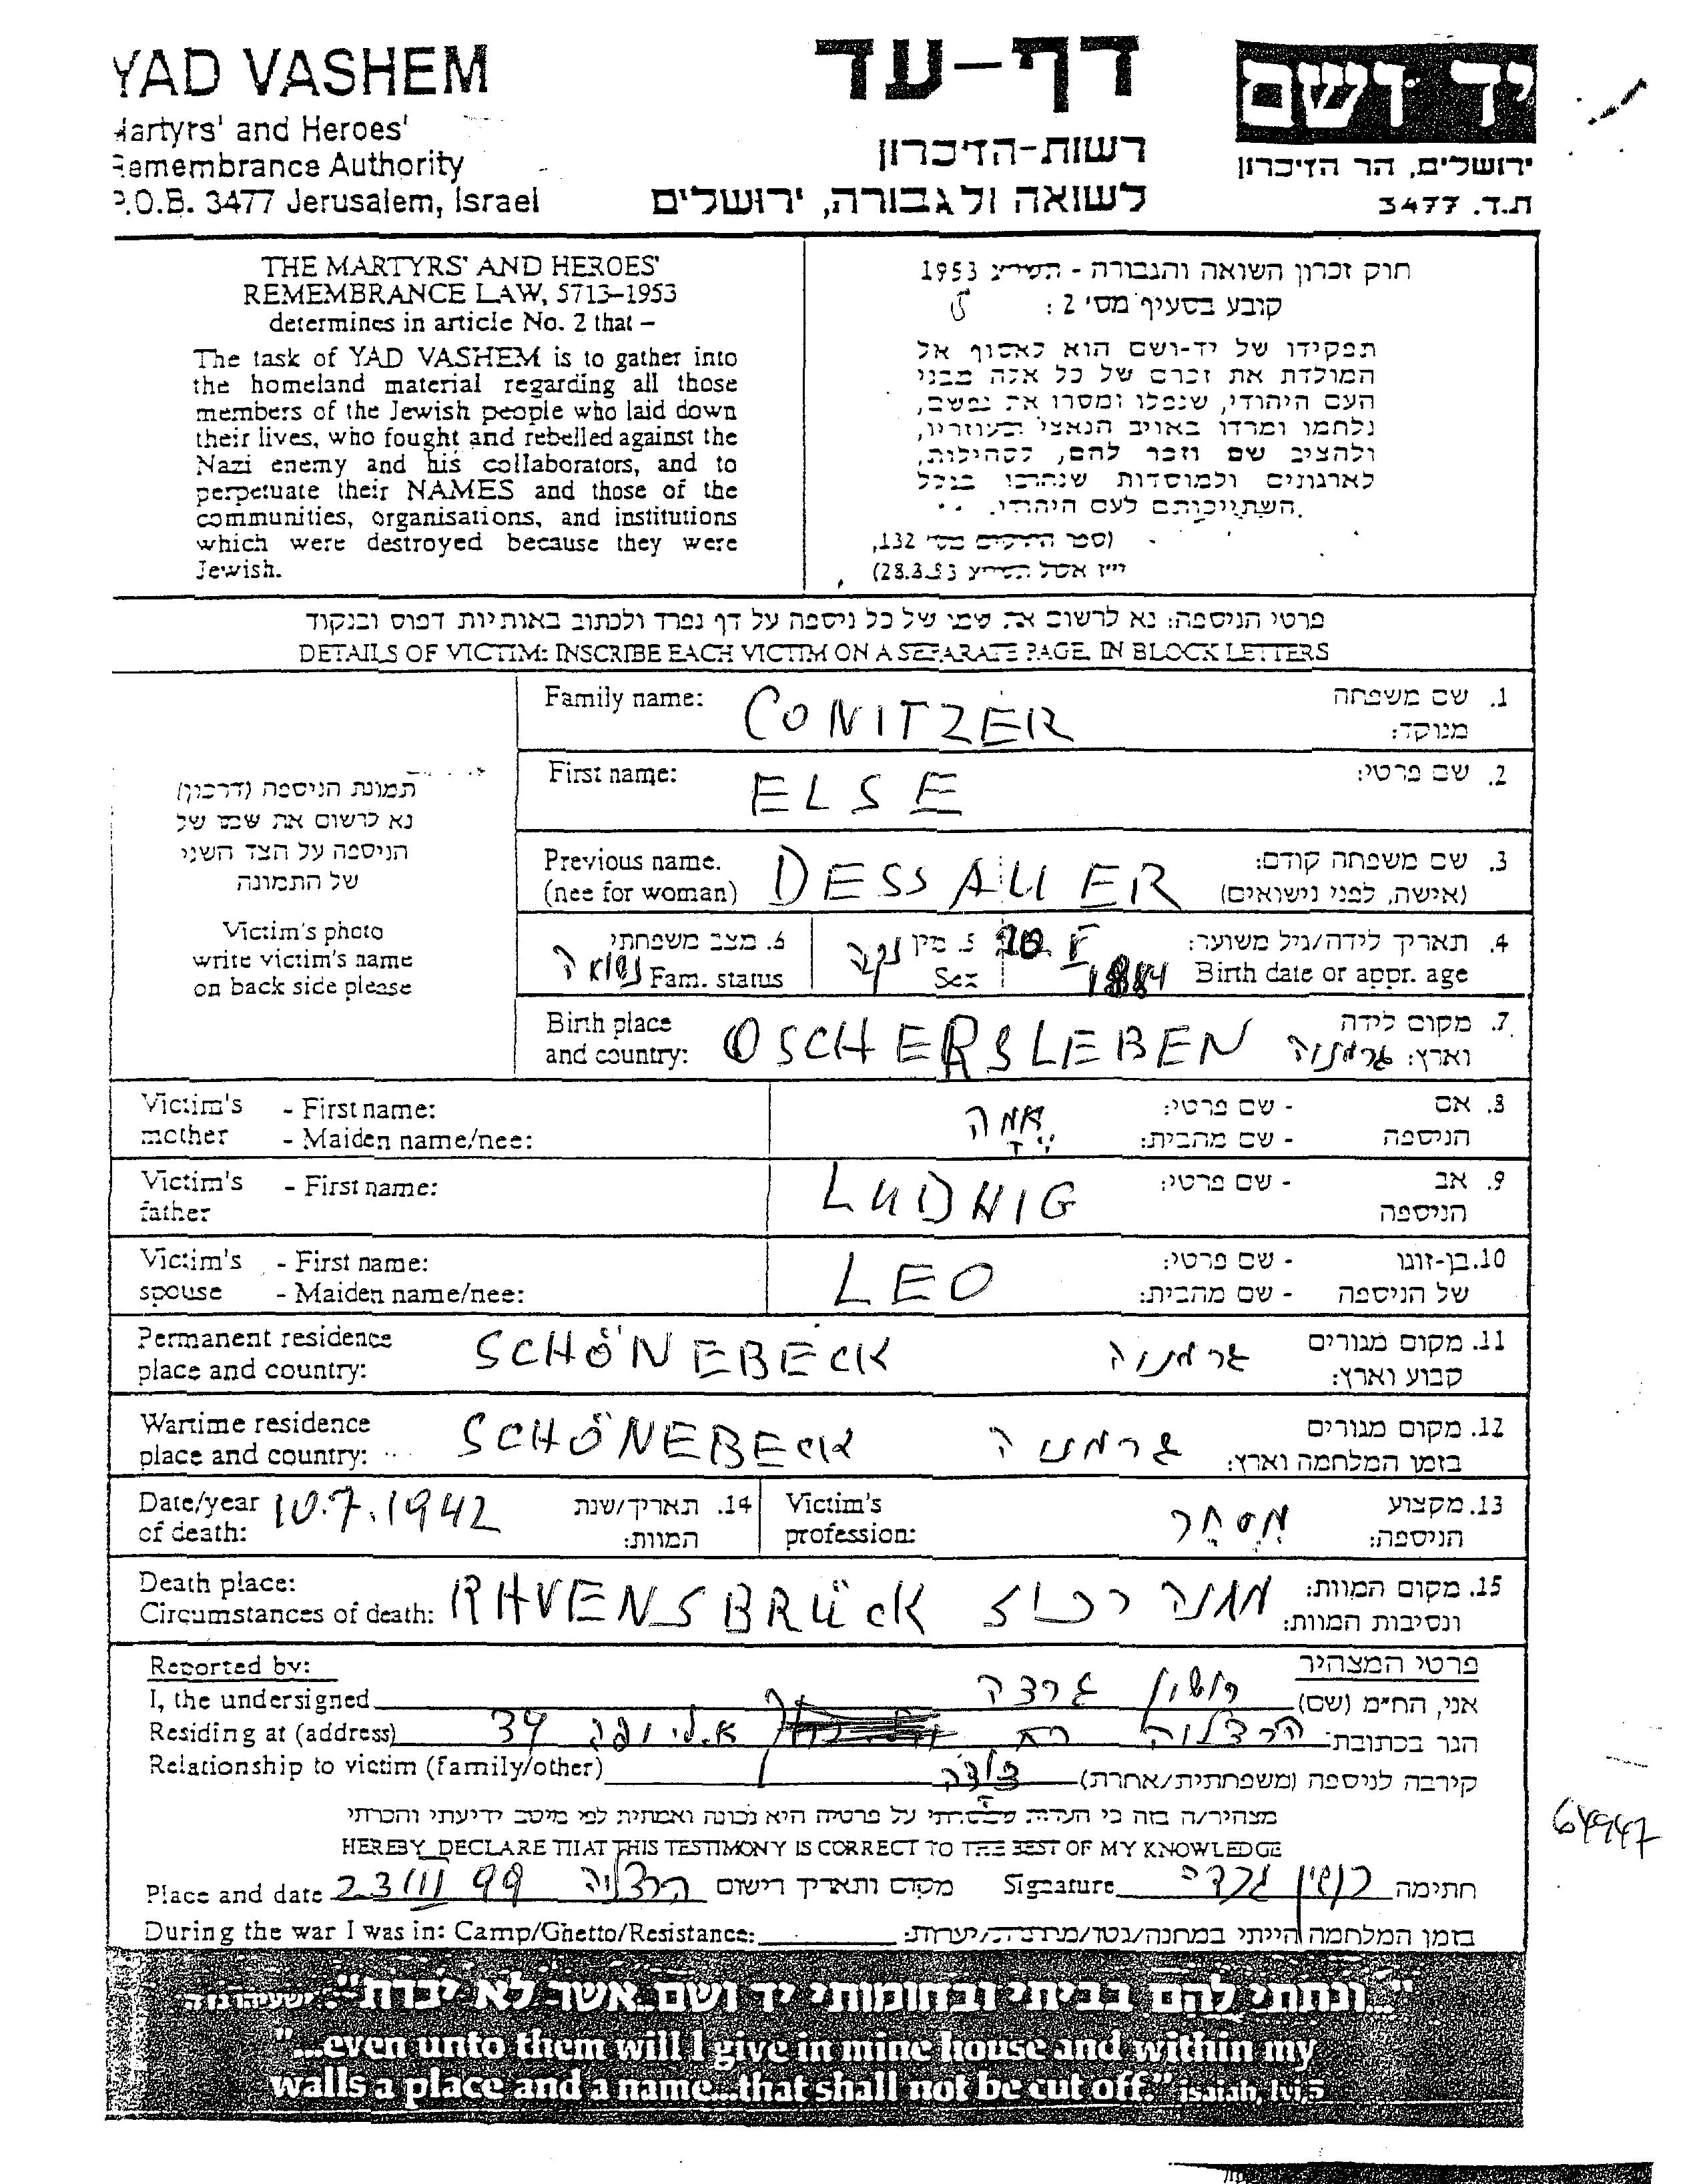 YAD VASHEM
Martyrs' and Heroes'
Remembrance Authority
P.O.B. 3477 Jerusalem, Israel
דף-עד
רשות-הזיכרון
לשואה ולגבורה, ירושלים
יד ושם
ירושלים, הר הזיכרון
ת.ד. 3477
THE MARTYRS' AND HEROES'
REMEMBRANCE LAW, 5713–1953
determines in article No. 2 that –
The task of YAD VASHEM is to gather into
the homeland material regarding all those
members of the Jewish people who laid down
their lives, who fought and rebelled against the
Nazi enemy and his collaborators, and to
perpetuate their NAMES and those of the
communities, organisations, and institutions
which were destroyed because they were
Jewish.
חוק זכרון השואה והגבורה - תשי״ג 1953
קובע בסעיף מס' 2 :
תפקידו של יד-ושם הוא לאסוף אל
המולדת את זכרם של כל אלה מבני
העם היהודי, שנפלו ומסרו את נפשם,
נלחמו ומרדו באויב הנאצי ובעוזריו,
ולהציב שם וזכר להם, לקהילות,
לארגונים ולמוסדות שנחרבו בגלל
השתייכותם לעם היהודי.
(ספר החוקים מס' 132,
י״ז אלול תשי״ג 28.8.53)
פרטי הניספה: נא לרשום את שמו של כל ניספה על דף נפרד ולכתוב באותיות דפוס ובנקוד
DETAILS OF VICTIM: INSCRIBE EACH VICTIM ON A SEPARATE PAGE, IN BLOCK LETTERS
תמונת הניספה (דרכון)
נא לרשום את שמו של
הניספה על הצד השני
של התמונה
Victim's photo
write victim's name
on back side please
Family name: CONITZER 1. שם משפחה
מנוקד:
First name: ELSE 2. שם פרטי:
Previous name. DESSAUER 3. שם משפחה קודם:
(nee for woman) (אישה, לפני נישואים)
6. מצב משפחתי נשואה Fam. status
5. מין נקבה Sex
20 V 1884 4. תאריך לידה/גיל משוער:
Birth date or appr. age
Birth place OSCHERSLEBEN גרמניה 7. מקום לידה
and country: וארץ:
Victim's - First name: אמה - שם פרטי: 8. אם
mother - Maiden name/nee: - שם מהבית: הניספה
Victim's - First name: LUDWIG - שם פרטי: 9. אב
father הניספה
Victim's - First name: LEO - שם פרטי: 10. בן-זוגו
spouse - Maiden name/nee: - שם מהבית: של הניספה
Permanent residence SCHÖNEBECK גרמניה 11. מקום מגורים
place and country: קבוע וארץ:
Wartime residence SCHÖNEBECK גרמניה 12. מקום מגורים
place and country: בזמן המלחמה וארץ:
Date/year 10.7.1942 14. תאריך/שנת
of death: המוות:
Victim's מסחר 13. מקצוע
profession: הניספה:
Death place: RAVENSBRÜCK מחנה ריכוז 15. מקום המוות:
Circumstances of death: ונסיבות המוות:
Reported by: פרטי המצהיר
I, the undersigned גרדה אני, הח״מ (שם)
Residing at (address) הרצליה 34 הגר בכתובת:
Relationship to victim (family/other) קירבה לניספה (משפחתית/אחרת)
מצהיר/ה בזה כי העדות שמסרתי על פרטיה היא נכונה ואמתית לפי מיטב ידיעתי והכרתי
HEREBY DECLARE THAT THIS TESTIMONY IS CORRECT TO THE BEST OF MY KNOWLEDGE
64947
Place and date 23 III 99 הרצליה מקום ותאריך רישום Signature גרדה חתימה
During the war I was in: Camp/Ghetto/Resistance: בזמן המלחמה הייתי במחנה/גטו/מחתרת/יערות:
"...ונתתי להם בביתי ובחומותי יד ושם אשר לא יכרת" ישעיהו נו ה
"...even unto them will I give in mine house and within my
walls a place and a name...that shall not be cut off." isaiah, lvi,5